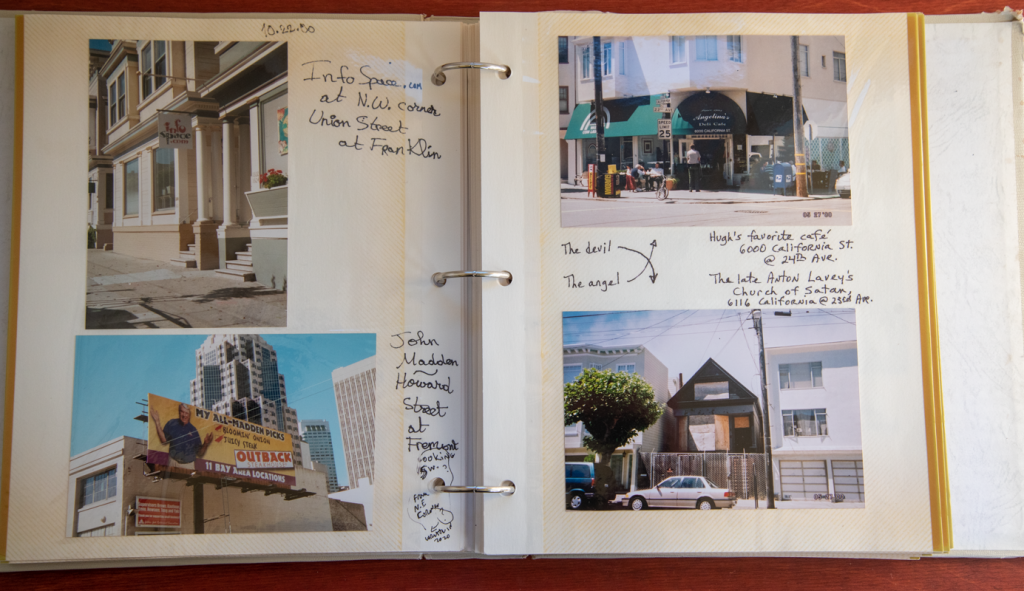 10.22.00
Info Space.com
at N.W. corner
Union Street
at Franklin
Info
Space
.com
John
Madden
Howard
Street
at
Fremont
Looking
from
N.E.
Corner
2020
MY ALL-MADDEN PICKS
BLOOMIN' ONION
JUICY STEAK
OUTBACK
11 BAY AREA LOCATIONS
Angelina's
Deli Cafe
6000 CALIFORNIA ST
SPEED
LIMIT
25
The devil
The angel
Hugh's favorite café
6000 California St.
@ 24th Ave.
The late Anton Lavey's
Church of Satan,
6116 California @ 23rd Ave.